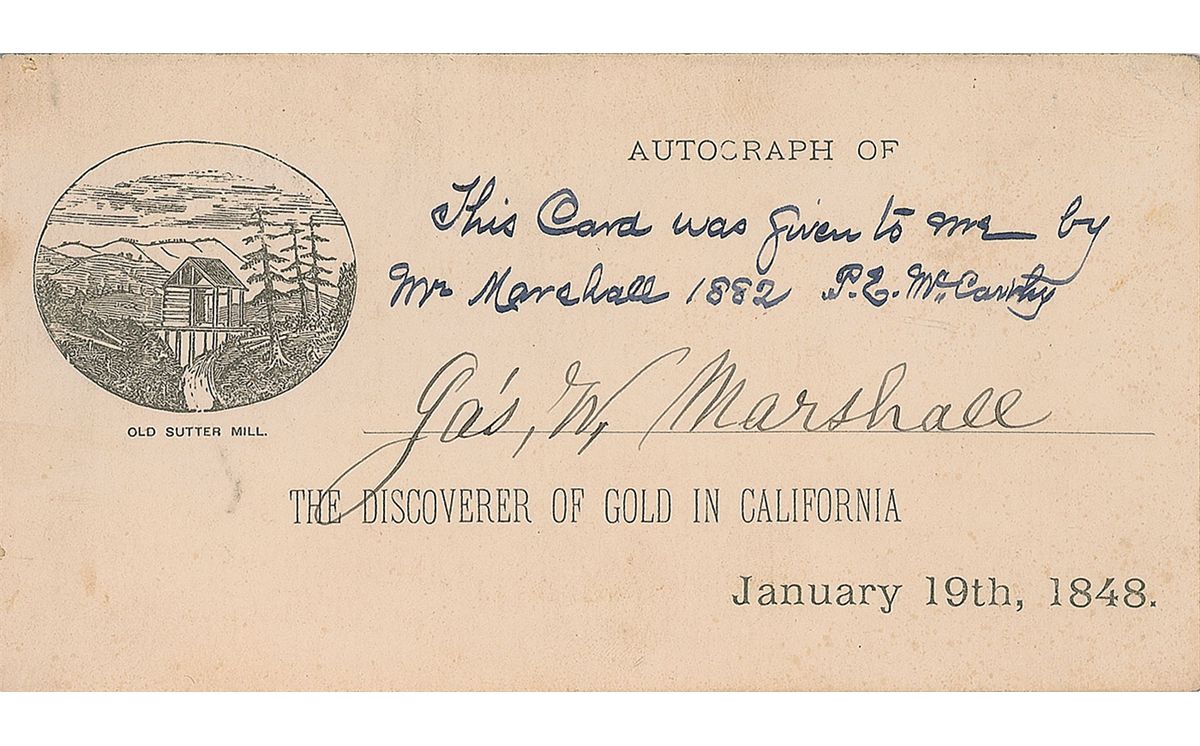 AUTOGRAPH OF
This Card was given to me by
Mr Marshall 1882 P.E. McCarthy
Jas, W, Marshall
OLD SUTTER MILL.
THE DISCOVERER OF GOLD IN CALIFORNIA
January 19th, 1848.